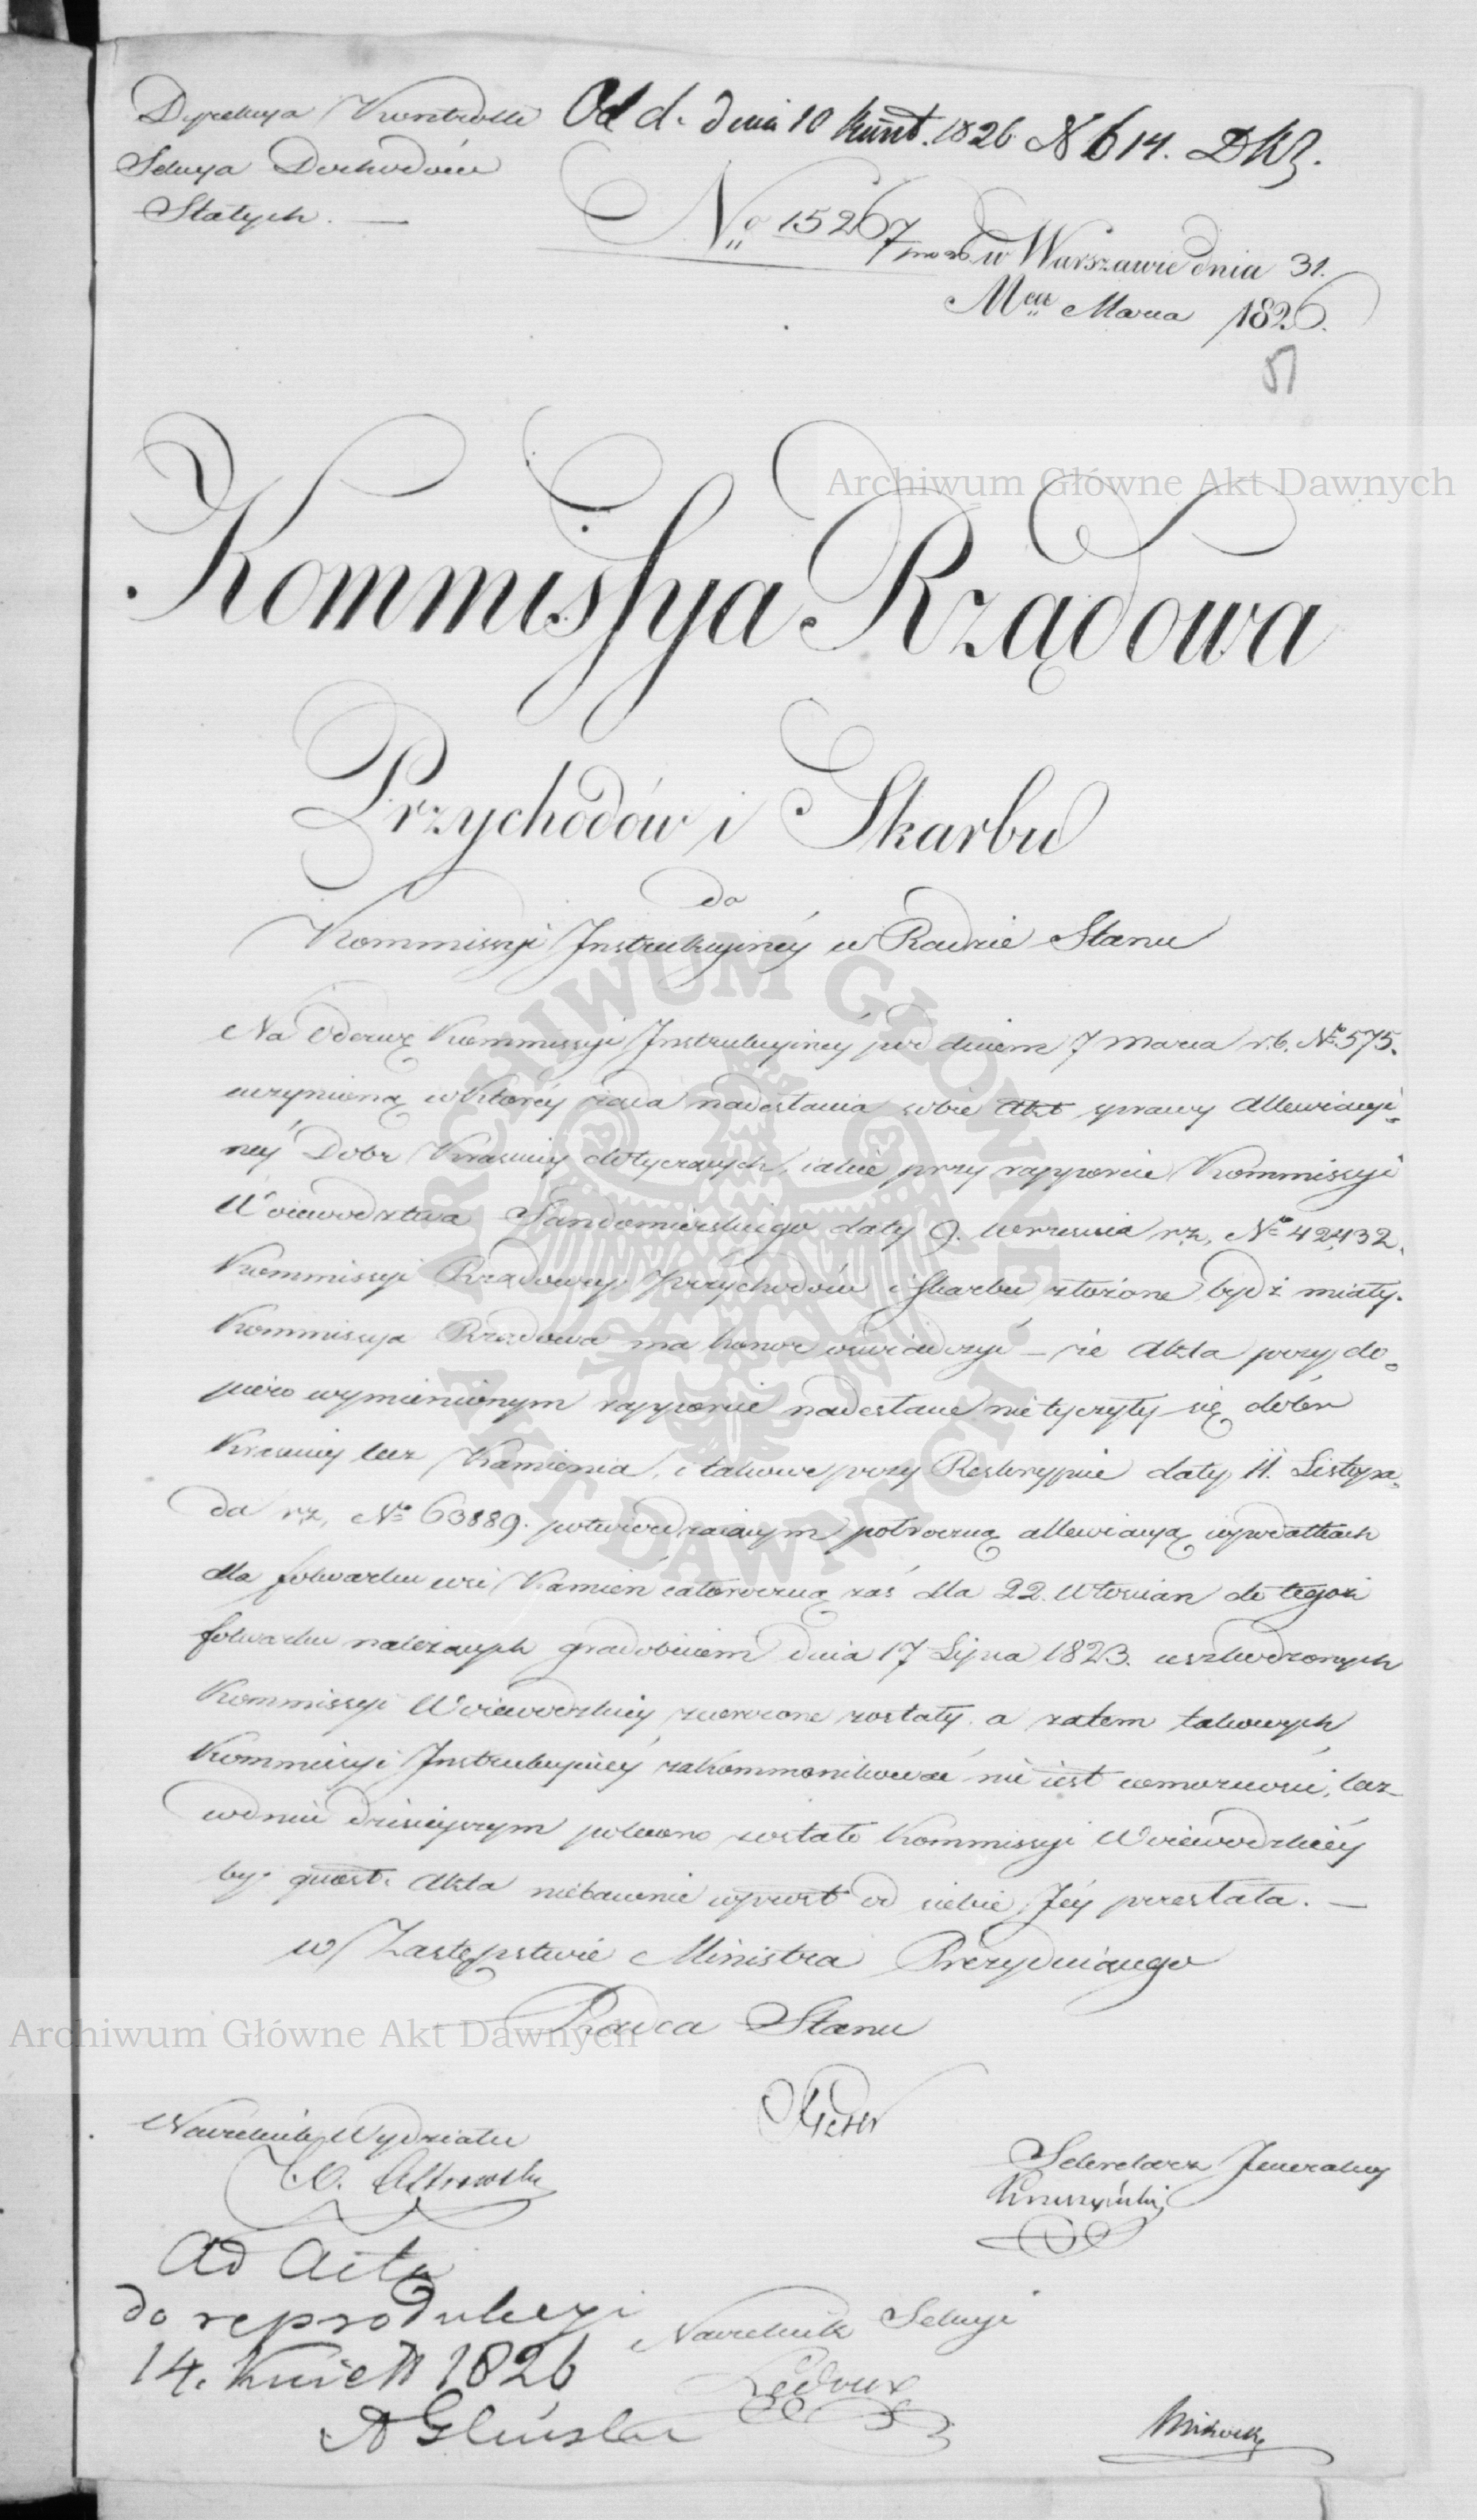 Dyrekcya Kontrolli
Sekcya Dochodów
Stałych. —
Od d. dnia 10 Kwiet. 1826 N 614. DKJ.
No 15267
w Warszawie dnia 31.
Mca Marca 1826.
51
Archiwum Główne Akt Dawnych
Kommissya Rządowa
Przychodów i Skarbu
do
Kommissyi Instrukcyinéy w Radzie Stanu
Na Odezwę Kommissyi Instrukcyinéy pod dniem 7 Marca r.b. No 575.
uczynioną w któréy żąda nadesłania sobie Akt sprawy Allewiacyi-
néy Dobr Krasiny dotyczących, iakie przy rapporcie Kommissyi
Woiewodztwa Sandomierskiego daty 9. Września r.z. No 42,432.
Kommissyi Rządowey Przychodów i Skarbu złożone bydź miały.
Kommissya Rządowa ma honor oswiadczyć – że Akta przy do-
piero wymienionym rapporcie nadesłane nietyczyły się dóbr
Krasiny lecz Kamienia, i takowe przy Reskrypcie daty 11. Listopa-
da r.z. No 63889. potwierdzaiącym półroczną allewiacyą wpodatkach
dla folwarku wsi Kamień całoroczną zaś dla 22. Włościan do tegoż
folwarku należących gradobiciem dnia 17 Lipca 1823. uszkodzonych
Kommissyi Woiewodzkiéy zwrócone zostały. a zatem takowych
Kommissyi Instrukcyinéy zakommonikować nie iest wmożności, lecz
wdniu dzisieyszym polecono zostało Kommissyi Woiewodzkiéy
by quest. Akta niebawnie wprost od siebie Jéy przesłała. —
w Zastępstwie Ministra Prezyduiącego
Radca Stanu
Archiwum Główne Akt Dawnych
Naczelnik Wydziału
Sekretarz Jeneralny
Kruszyński
Ad Acta
do reprodukcyi
14. Kwiet 1826
A Gliński
Naczelnik Sekcyi
Ledoux
ARCHIWUM GŁÓWNE
AKT DAWNYCH